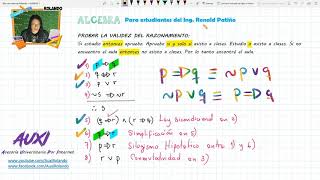 ROLANDO
ALGEBRA Para estudiantes del Ing. Ronald Patiño
PROBAR LA VALIDEZ DEL RAZONAMIENTO:
Si estudio entonces apruebo. Apruebo si y solo si asisto a clases. Estudio o asisto a clases. Si no
encuentro el aula entonces no asisto a clases. Por lo tanto encontré el aula.
1) p ⇒ q
2) q ⇔ r
3) p ∨ r
∴ s
5) (q ⇒ r) ∧ (r ⇒ q) Ley bicondicional en 2)
6) q ⇒ r Simplificación en 5)
7) p ⇒ r Silogismo Hipotético entre 1) y 6)
8) r ∨ p Conmutatividad en 3)
p ⇒ q ≡ ~p ∨ q
p ⇒ q ≡ ~p ∨ q
AUXI
Asesoría Universitaria Por Internet
www.youtube.com/AuxiRolando
www.facebook.com/AuxiRolando